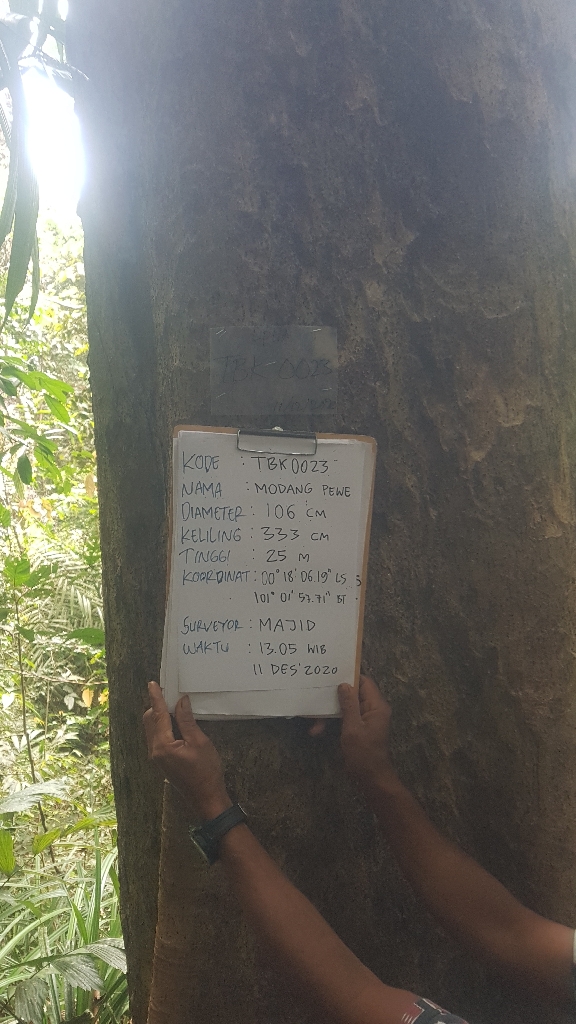 TBK0023
KODE : TBK0023
NAMA : MODANG PEWE
DIAMETER : 106 CM
KELILING : 333 CM
TINGGI : 25 M
KOORDINAT : 00° 18' 06.19" LS
101° 01' 57.71" BT
SURVEYOR : MAJID
WAKTU : 13.05 WIB
11 DES'2020